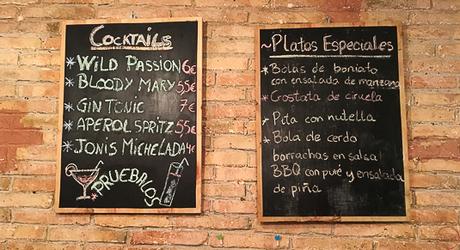 COCKTAILS
* WILD PASSION 6€
* BLOODY MARY 5,5€
* GIN TONIC 7€
* APEROL SPRITZ 5,5€
* JONIS MICHELADA 4€
* PRUEBALOS
~ PLATOS ESPECIALES
* Bolas de boniato
con ensalada de manzana
* Crostaita de ciruela
* Pita con nutella
* Bola de cerdo
borrachas en salsa
BBQ con puré y ensalada
de piña